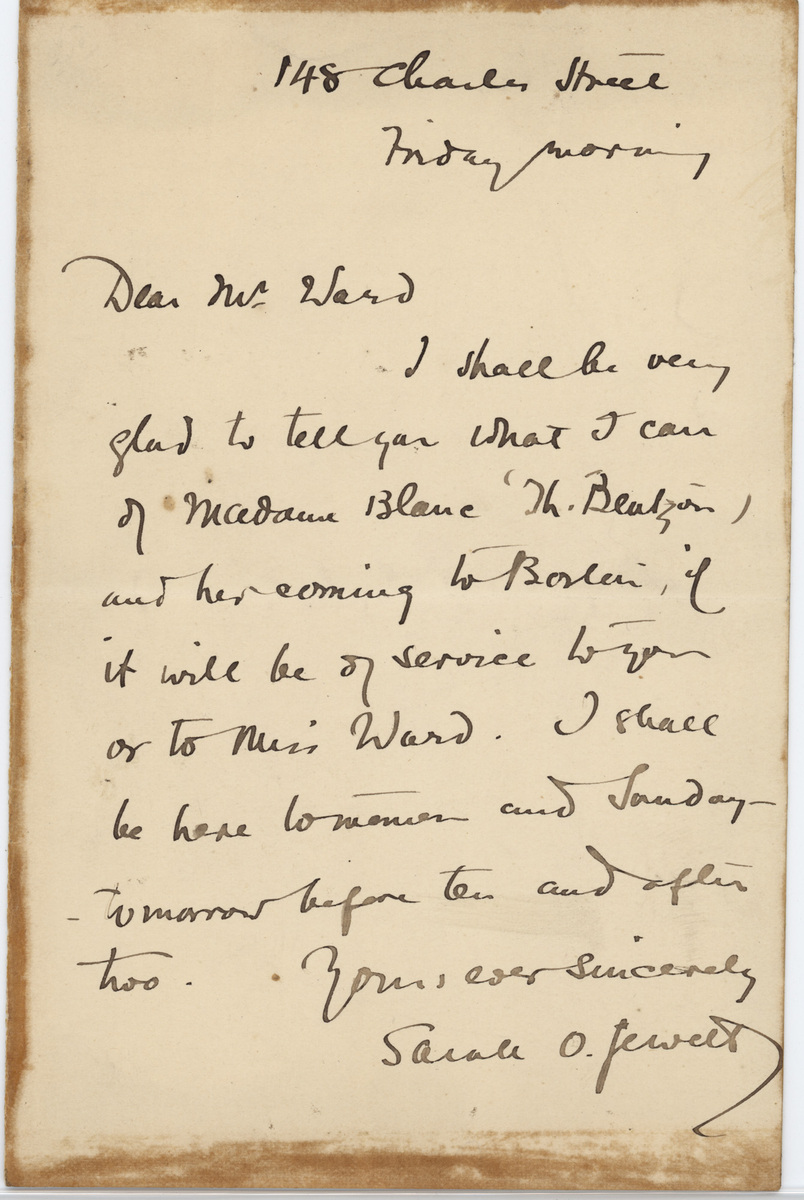 148 Charles Street
Friday morning
Dear Mr Ward
I shall be very
glad to tell you what I can
of Madame Blanc (Th. Bentzon)
and her coming to Boston, if
it will be of service to you
or to Miss Ward. I shall
be here tomorrow and Sunday—
- tomorrow before ten and after
two. Yours ever sincerely
Sarah O. Jewett